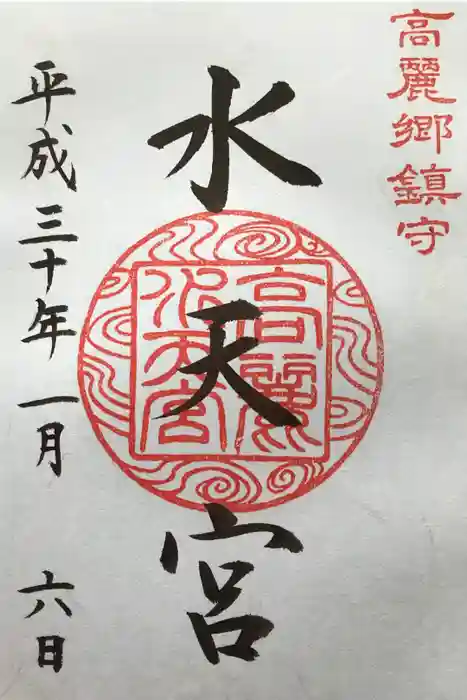 高麗郷鎮守
高麗
水天宮
水天宮
平成三十年一月六日